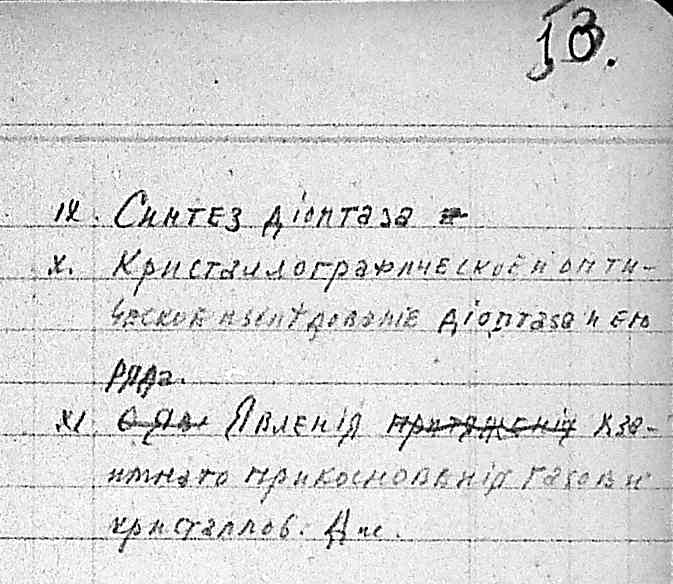 13.
IX. Синтез діоптаза
X. Кристаллографическое и опти-
ческое изслѣдованіе діоптаза и его
ряда.
XI. О Яв Явленія притяженія вза-
имнаго прикосновенія газов и
кристаллов.